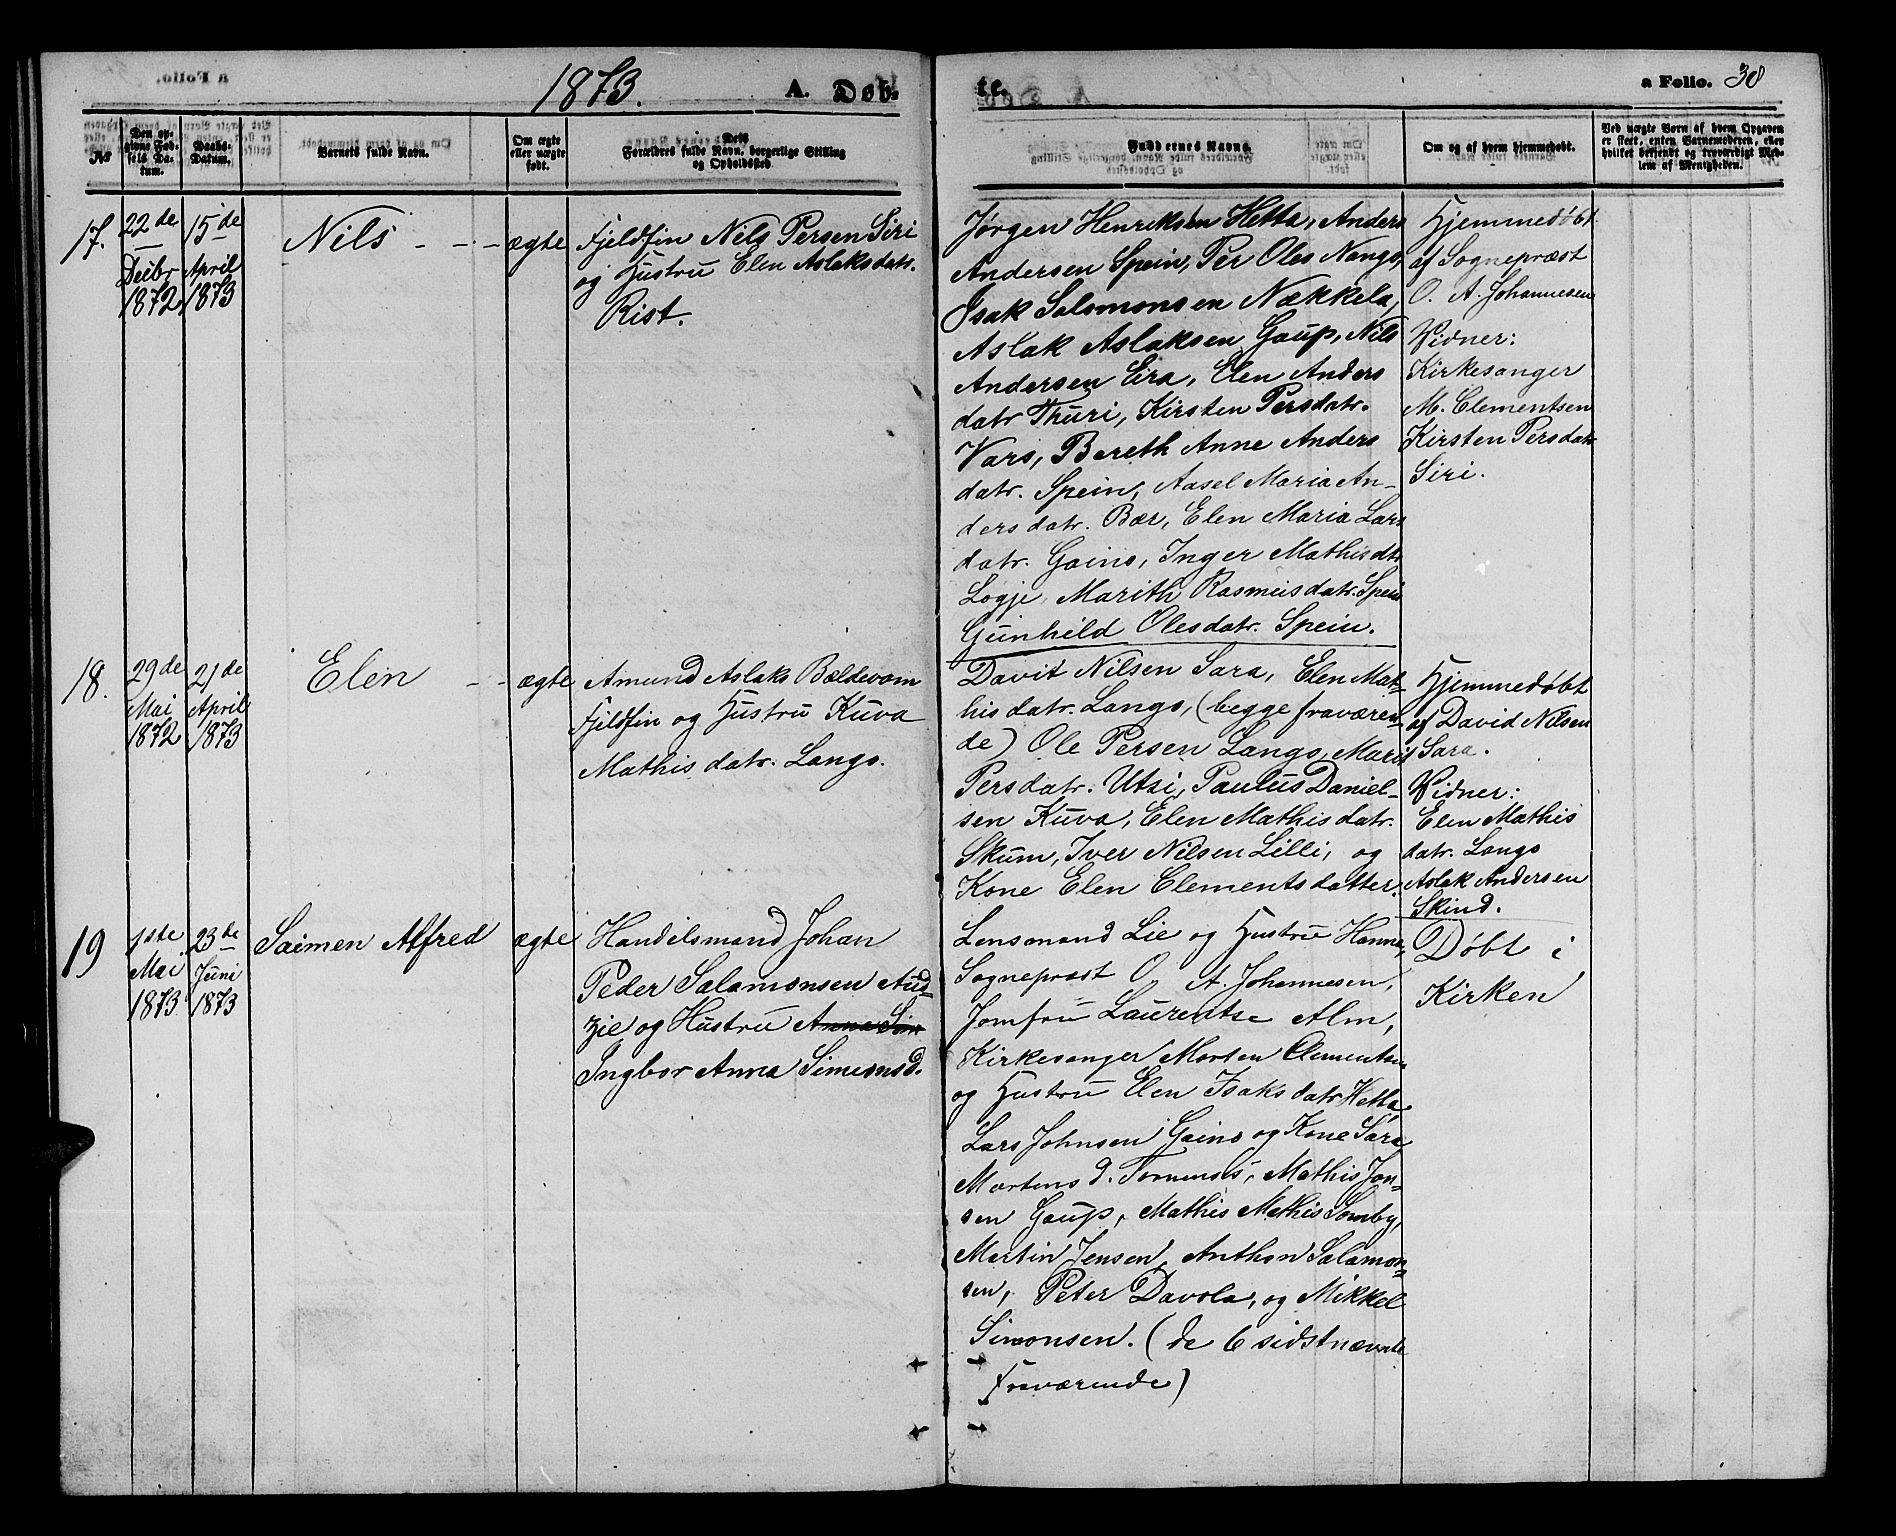 1873.
A. Døb-
te.
a Folio. 38
No
Den op-
givne Fød-
sels Da-
tum.
Daabs-
Datum.
Barnets fulde Navn.
Om ægte
eller uægte
født.
Dets
Forældres fulde Navn, borgerlige Stilling
og Opholdssted.
Faddernes Navne.
Om og af hvem hjemmedøbt.
Ved uægte Børn af hvem Opgaven
er skeet, enten Barnemoderen, eller
hvilket bekjendt og troværdigt Med-
lem af Menigheden.
17.
22de
Decbr
1872
15de
April
1873
Nils
ægte
Fjeldfin Nils Persen Siri
og Hustru Elen Aslaksdatr.
Rist.
Jørgen Henriksen Hetta, Anders
Andersen Spein, Per Oles Nango,
Isak Salomonsen Nækkela,
Aslak Aslaksen Gaup, Nils
Andersen Eira, Elen Anders
datr Thuri, Kirsten Persdatr.
Vars, Bereth Anne Anders
datr. Spein, Aasel Maria An-
dersdatr. Bær, Elen Maria Lars
datr. Gaino, Inger Mathisdtr
Logje, Marith Rasmusdatr. Spein
Gunhild Olesdatr. Spein.
Hjemmedøbt
af Sognepræst
O. A. Johannesen
Vidner:
Kirkesanger
M. Clementsen
Kirsten Persdatr
Siri.
18.
29de
Mai
1872
21de
April
1873
Elen
ægte
Amund Aslaks Bældevom
Fjeldfin og Hustru Kuva
Mathisdatr. Lango.
Davit Nilsen Sara, Elen Mat-
hisdatr. Lango, (begge fraværen-
de) Ole Persen Lango, Marit
Persdatr. Utsi, Paulus Daniel-
sen Kuva, Elen Mathisdatr.
Skum, Iver Nilsen Lilli, og
Kone Elen Clementsdatter.
Hjemmedøbt
af David Nilsen
Sara.
Vidner:
Elen Mathis
datr. Lango
Aslak Andersen
Skind.
19
1ste
Mai
1873
23de
Juni
1873
Saimen Alfred
ægte
Handelsmand Johan
Peder Salamonsen Aud-
zie og Hustru Anna Sim
Ingbor Anna Simonsd.
Lensmand Lie og Hustru Hanna,
Sognepræst O. A. Johannesen,
Jomfru Laurentse Alm,
Kirkesanger Morten Clementsen
og Hustru Elen Isaksdatr Hetta
Lars Johnsen Gaino og Kone Sara
Mortens d. Tornensis, Mathis Jon-
sen Gaup, Mathis Mathis Somby,
Martin Jensen, Anthon Salamon-
sen, Peter Davola, og Mikkel
Simonsen. (de 6 sidstnævnte
Fraværende)
Døbt i
Kirken